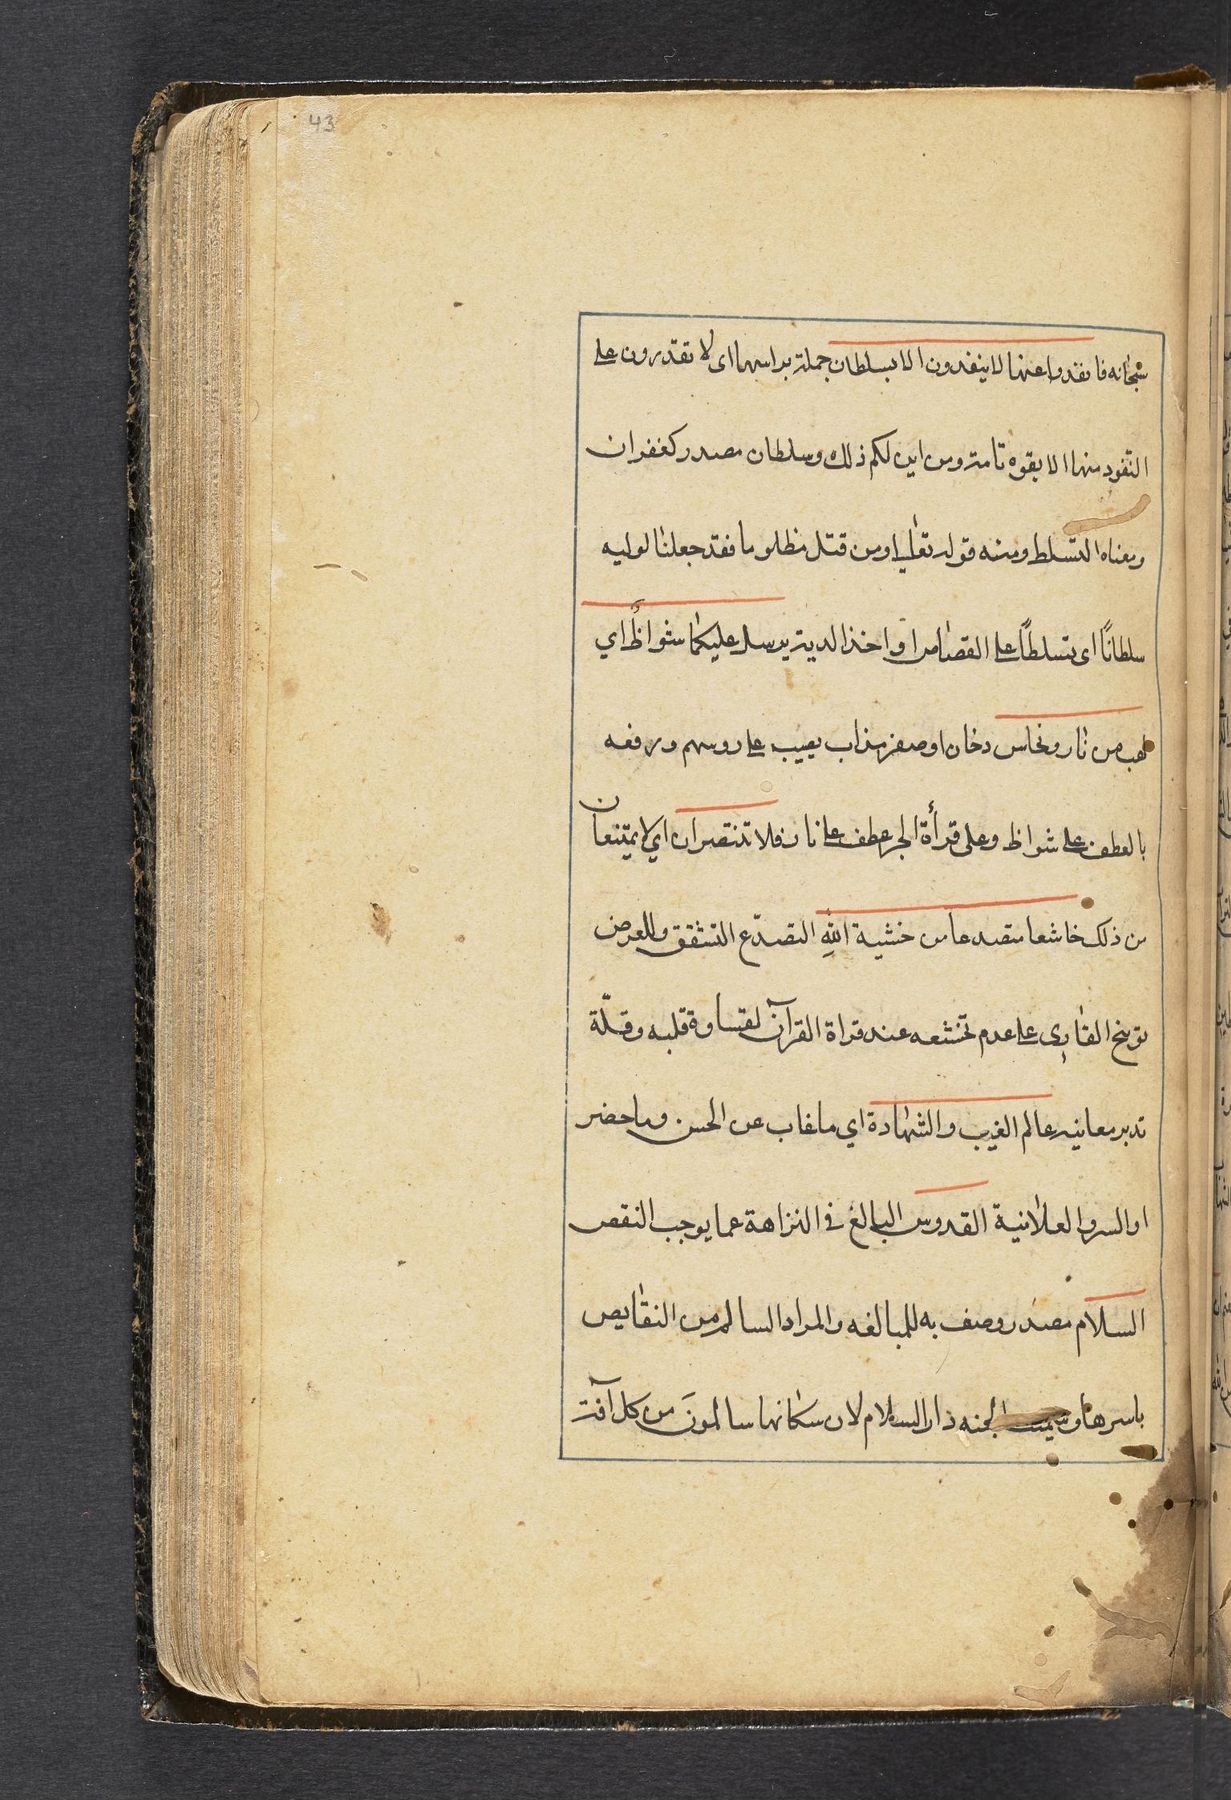 43
سبحانه فانفذوا عنها لا ينفذون الا بسلطان جملة براسها اى لا تقدرون على
النفوذ منها الا بقوه تامة ومن اين لكم ذلك وسلطان مصدر كغفران
ومعناه التسلط ومنه قوله تعالى ومن قتل مظلوما فقد جعلنا لوليه
سلطاناً اى تسلطاً على القصاص او اخذ الدية يرسل عليكما شواظٌ اي
لهب من نار ونحاس دخان او صفر مذاب يصب على روسهم ورفعه
بالعطف على شواظ وعلى قرأة الجر عطف على نار فلا تنتصران اي لا يمتنعان
من ذلك خاشعا متصدعا من خشية اللهِ التصدّع التشقق والغرض
توبيخ القارى على عدم تخشعه عند قراة القرآن لقساوة قلبه وقلّة
تدبر معانيه عالم الغيب والشهادة اي ما غاب عن الحس وما حضر
او السر والعلانية القدوس البالغ في النزاهة عما يوجب النقص
السلام مصدر وصف به للمبالغه والمراد السالم من النقايص
باسرها وسميت الجنه دار السلام لان سكانها سالمونَ من كل آفة